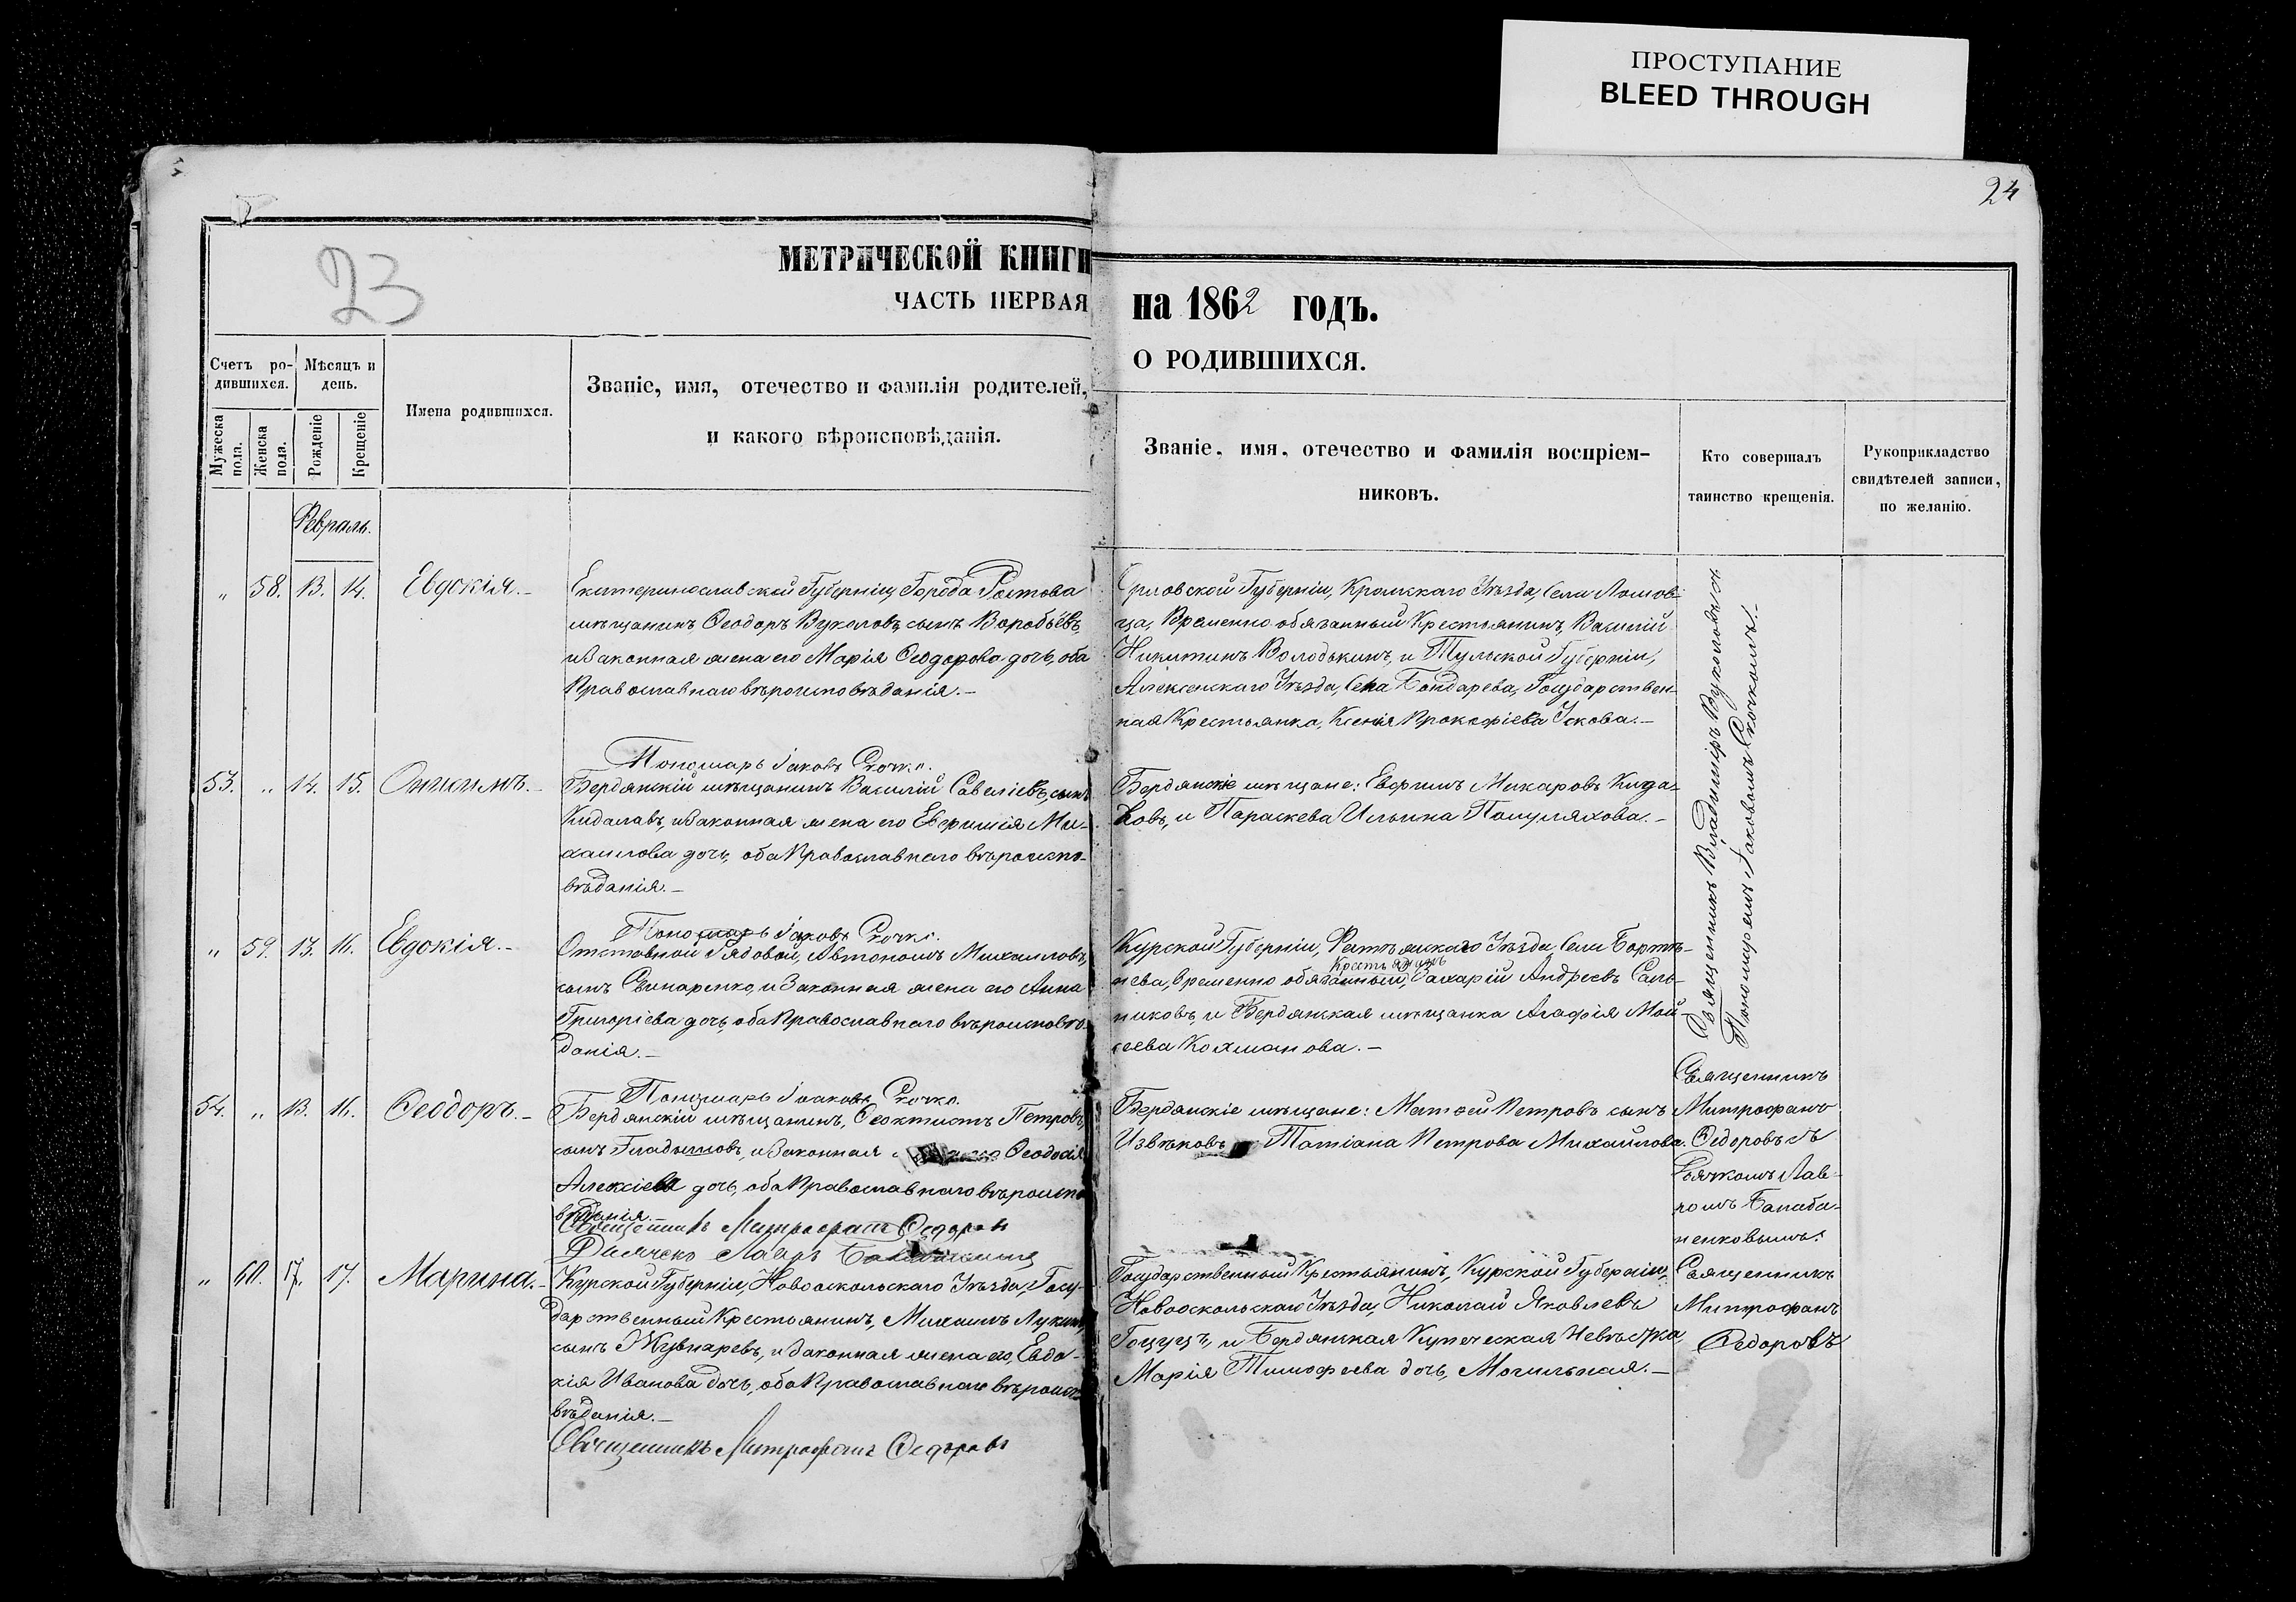 ПРОСТУПАНИЕ
BLEED THROUGH
24
23
МЕТРИЧЕСКОЙ КНИГИ
ЧАСТЬ ПЕРВАЯ
на 1862 годъ.
О РОДИВШИХСЯ.
Счетъ ро-
дившихся.
Мѣсяцъ и
день.
Мужеска
пола.
Женска
пола.
Рожденіе
Крещеніе
Имена родившихся.
Званіе, имя, отечество и фамилія родителей,
и какого вѣроисповѣданія.
Званіе, имя, отечество и фамилія воспріем-
никовъ.
Кто совершалъ
таинство крещенія.
Рукоприкладство
свидѣтелей записи,
по желанію.
Февраль.
„ 58. 13. 14. Евдокія.-
Екатеринославской Губерніи, Города Ростова
мѣщанинъ, Ѳеодоръ Вуколовъ, сынъ Воробьёвъ,
и законная жена его Марія Ѳеодорова дочь, оба
Православнаго вѣроисповѣданія.-
Орловской Губерніи, Кромскаго Уѣзда, Села Ломов-
ца, Временно обязанный Крестьянинъ, Василій
Никитинъ Володькинъ, и Тульской Губерніи,
Алексенскаго Уѣзда, Села Бондарева, Государствен-
ная Крестьянка, Ксенія Прокофіева Ускова.-
Пономарь Іаковъ Скочко.
53. „ 14. 15. Онисимъ.-
Бердянскій мѣщанинъ Василій Савеліевъ, сынъ
Кидалавъ, и законная жена его Евфимія Ми-
хаилова дочь, оба Православнаго вѣроиспо-
вѣданія.-
Бердянскіе мѣщане: Ефимъ Макаровъ Кида-
ловъ, и Параскева Ильина Полуляхова.-
Священникъ Владиміръ Вуколовъ съ
Пономаремъ Іаковомъ Скочкомъ.-
Пономарь Іаковъ Скочко.
„ 59. 13. 16. Евдокія.-
Отставной Рядовой, Автономъ Михаиловъ,
сынъ Свинаренко, и Законная жена его Анна
Григоріева дочь, оба Православнаго вѣроисповѣ-
данія.-
Курской Губерніи, Уѣзда, Села
Крестьянинъ
нева, временно обязанный, Захарій Андреевъ Саль-
никовъ, и Бердянская мѣщанка Агафія Мой-
сеева Кохманова.-
Пономарь Іаковъ Скочко.
54. „ 13. 16. Ѳеодоръ.-
Бердянскій мѣщанинъ, Ѳеоктистъ Петровъ,
сынъ Гладышовъ, и законная Ѳеодосія
Алексіева дочь, оба Православнаго вѣроиспо-
вѣданія.
Бердянскіе мѣщане: Матвей Петровъ сынъ
Извѣковъ Татіана Петрова Михайлова.
Священникъ
Митрофанъ
Ѳедоровъ съ
Дьячкомъ Лав-
ромъ Балаба-
ненковымъ.
Священникъ Митрофанъ Ѳедоровъ
Дьячекъ Лавръ
„ 60. 17. 17. Марина.-
Курской Губерніи, Новооскольскаго Уѣзда, Госу-
дарственный Крестьянинъ, Михаилъ Лукинъ,
сынъ Жувнаревъ, и законная жена его, Евдо-
кія Иванова дочь, оба Православнаго вѣроиспо-
вѣданія.-
Государственный Крестьянинъ, Курской Губерніи,
Новооскольскаго Уѣзда, Николай Яковлевъ
Гоцуцъ, и Бердянская Купеческая Невѣстка,
Марія Тимофеева дочь, Могильная.-
Священникъ
Митрофанъ
Ѳедоровъ
Священникъ Митрофанъ Ѳедоровъ